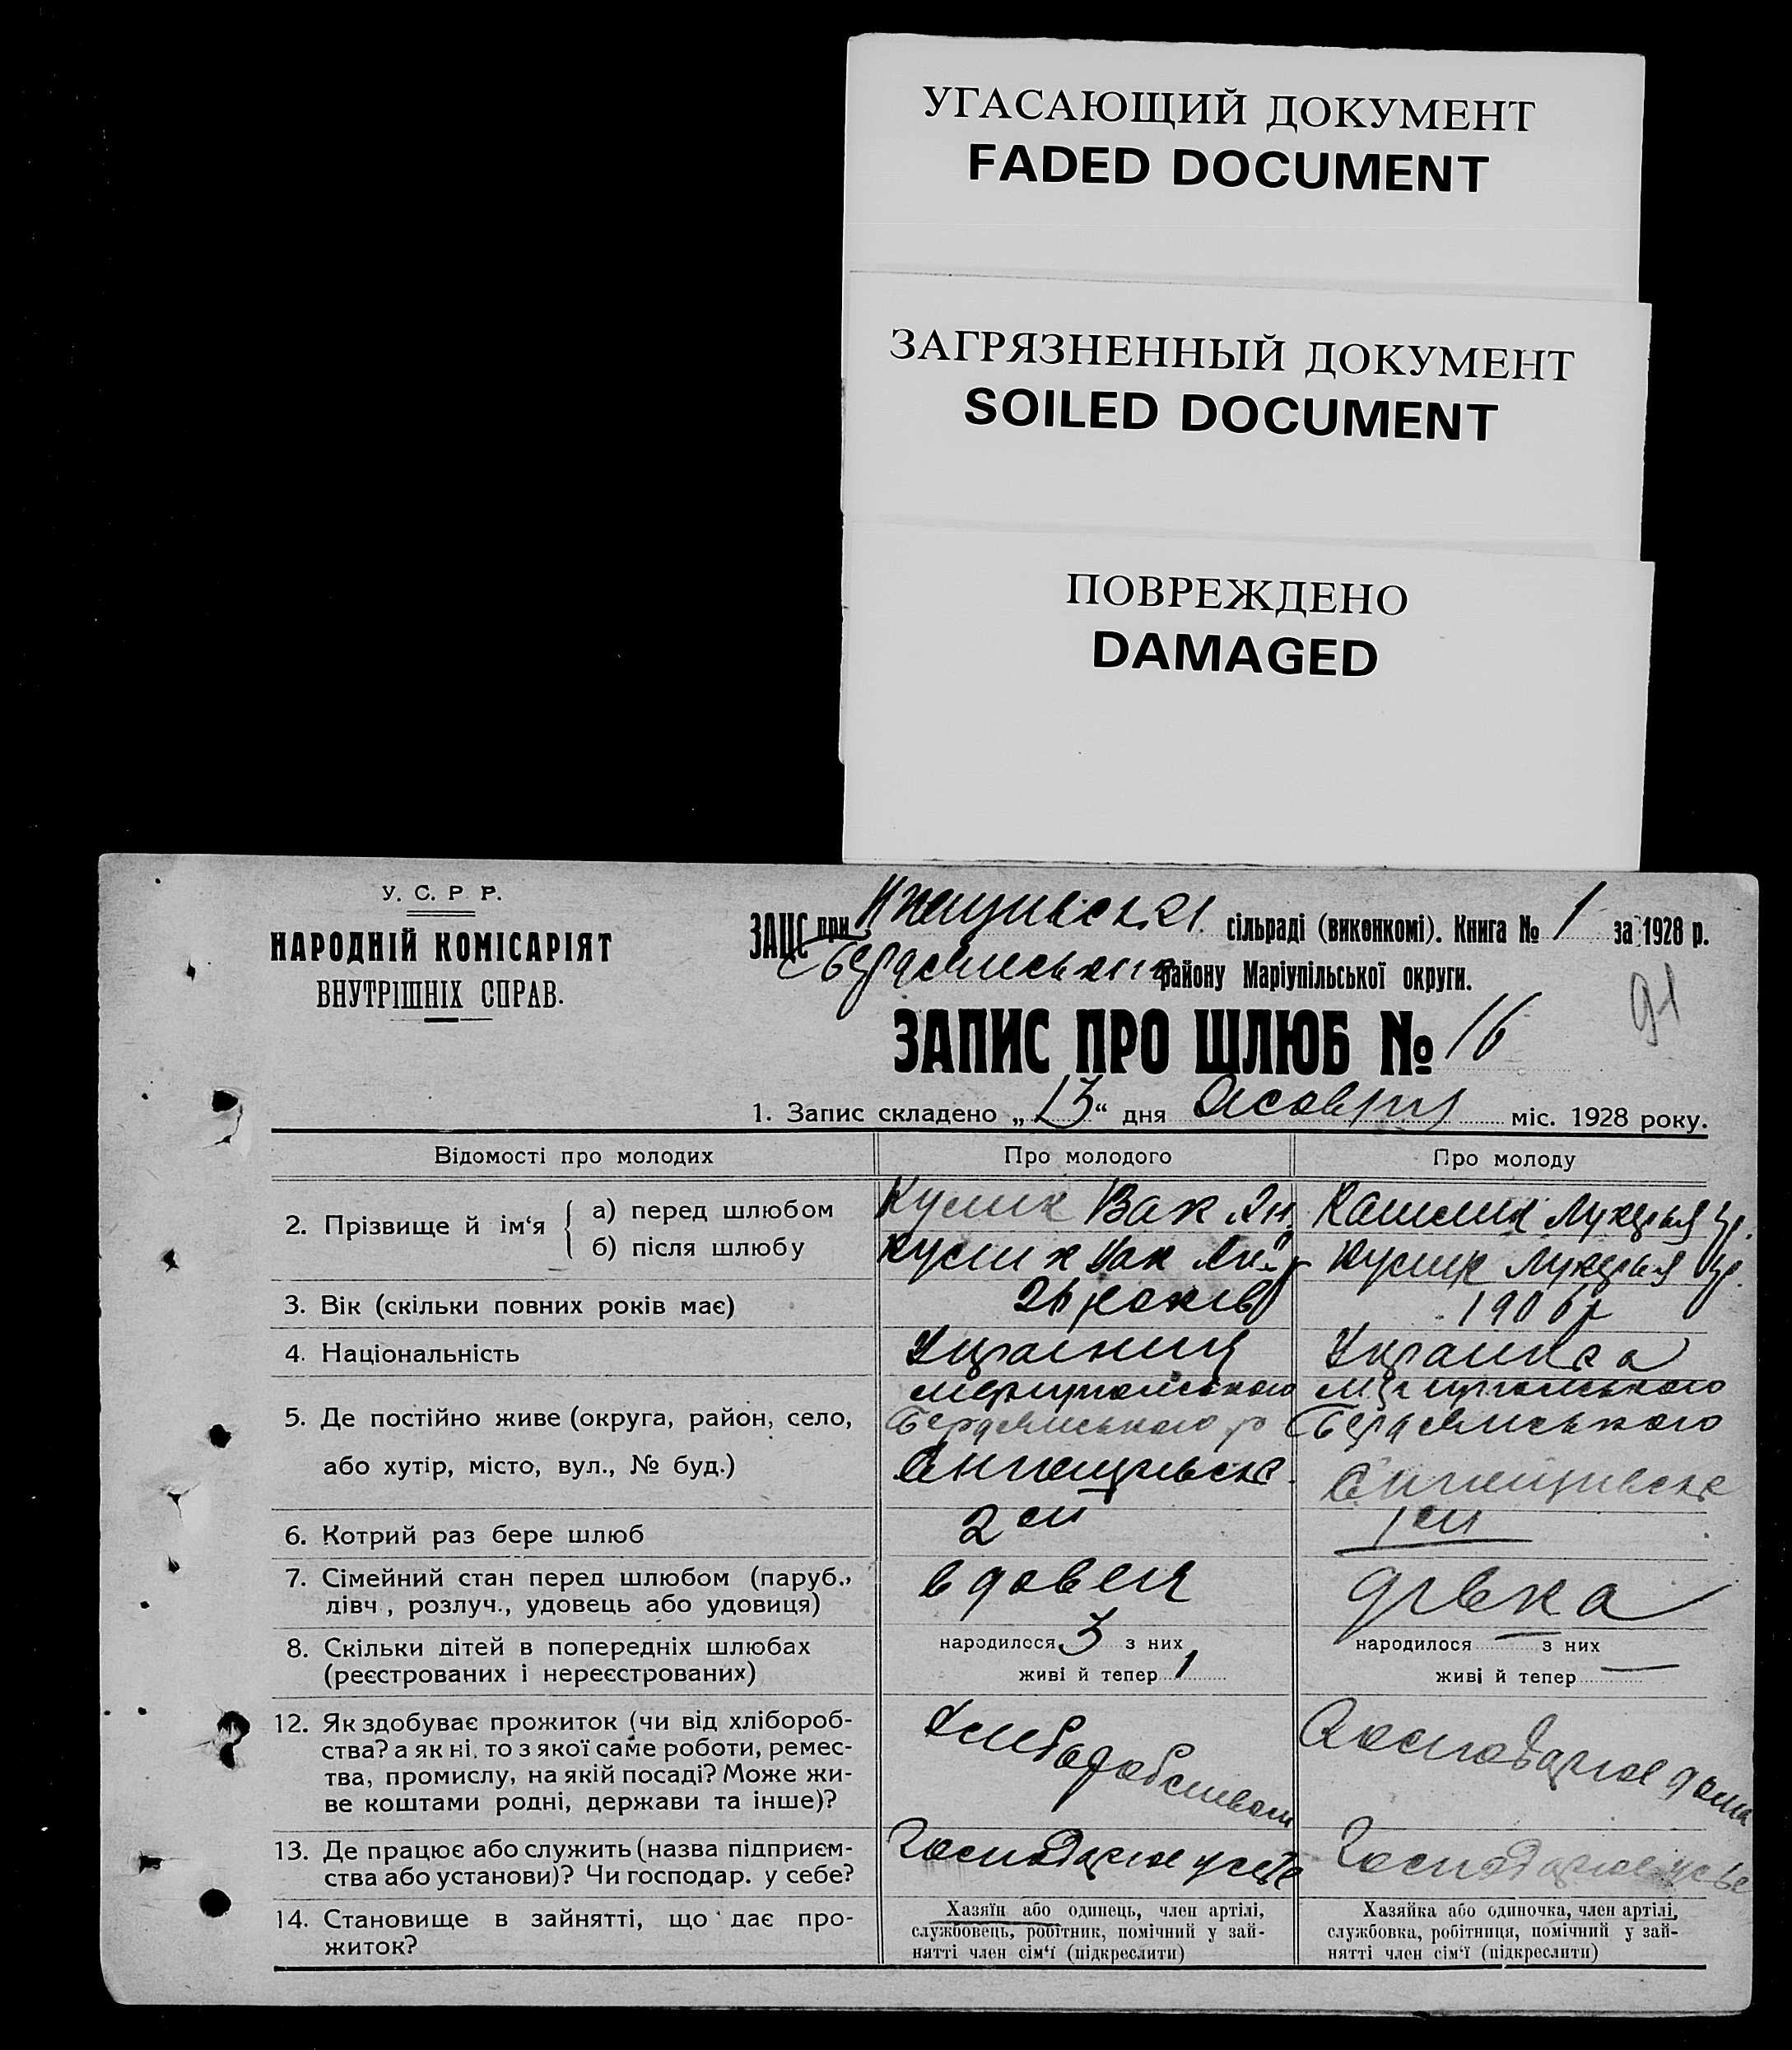 УГАСАЮЩИЙ ДОКУМЕНТ
FADED DOCUMENT
ЗАГРЯЗНЕННЫЙ ДОКУМЕНТ
SOILED DOCUMENT
ПОВРЕЖДЕНО
DAMAGED
У. С. Р Р.
НАРОДНІЙ КОМІСАРІЯТ
ВНУТРІШНІХ СПРАВ.
ЗАЦС при сільраді (виконкомі). Книга № 1 за 1928 р.
району Маріупільської округи.
91
ЗАПИС ПРО ШЛЮБ № 16
1. Запис складено „13“ дня міс. 1928 року.
Відомості про молодих Про молодого Про молоду
2. Прізвище й ім‘я { а) перед шлюбом Кулик Вак Ан.
б) після шлюбу Кулик Вак Ан. Кулик
3. Вік (скільки повних років має) 26 років 1906 р
4. Національність Украінец Украинка
5. Де постійно живе (округа, район, село,
або хутір, місто, вул., № буд.)
6. Котрий раз бере шлюб 2ий 1ий
7. Сімейний стан перед шлюбом (паруб.,
дівч , розлуч., удовець або удовиця) вдовец дівка
8. Скільки дітей в попередніх шлюбах народилося 3 з них народилося — з них
(реєстрованих і нереєстрованих) живі й тепер 1 живі й тепер —
12. Як здобуває прожиток (чи від хлібороб-
ства? а як ні, то з якої саме роботи, ремес-
тва, промислу, на якій посаді? Може жи-
ве коштами родні, держави та інше)?
13. Де працює або служить (назва підприєм-
ства або установи)? Чи господар. у себе?
14. Становище в зайнятті, що дає про-
житок?
Хазяїн або одинець, член артілі,
службовець, робітник, помічний у зай-
нятті член сім‘ї (підкреслити)
Хазяйка або одиночка, член артілі,
службовка, робітниця, помічний у зай-
нятті член сім‘ї (підкреслити)